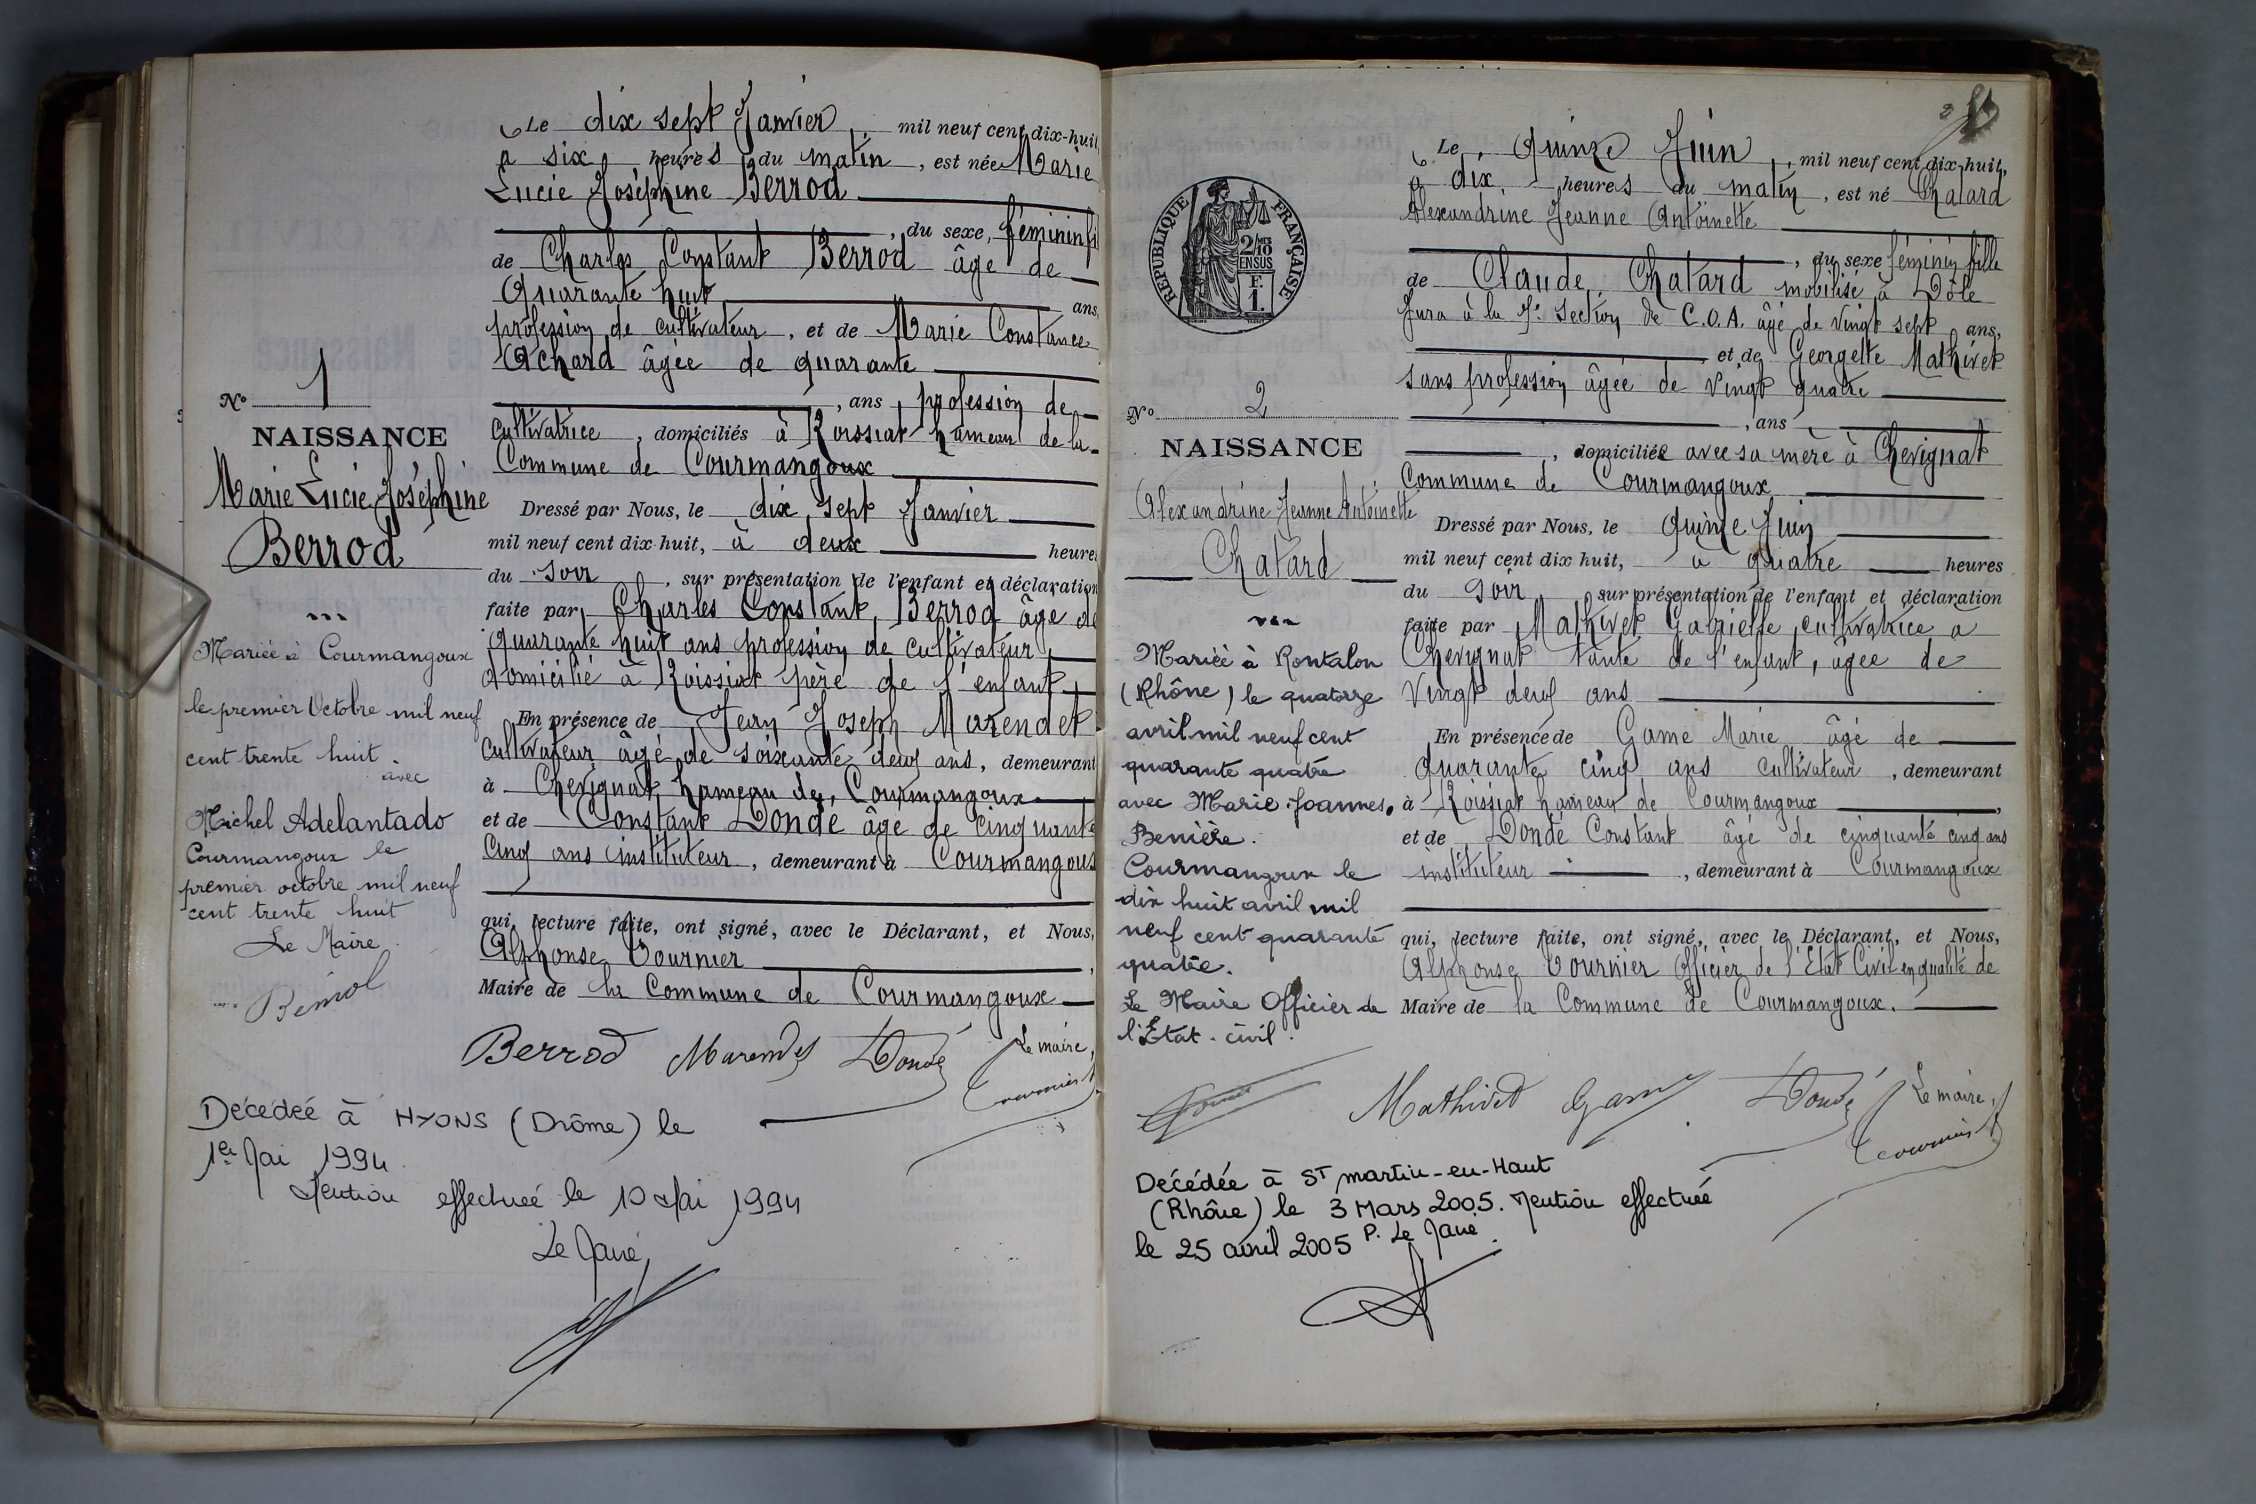 Le dix sept Janvier, mil neuf cent dix-huit,
à six heures du matin, est née Marie
Lucie Joséphine Berrod
, du sexe, féminin fi
de Charles Constant Berrod âgé de
Quarante huit ans,
profession de cultivateur, et de Marie Constance
Achard âgée de quarante
, ans, profession de
cultivatrice, domiciliés à Roissiat hameau de la
Commune de Courmangoux
Dressé par Nous, le dix sept Janvier
mil neuf cent dix-huit, à deux heures
du soir, sur présentation de l'enfant et déclaration
faite par Charles Constant Berrod âgé de
quarante huit ans profession de cultivateur
domicilié à Roissiat père de l'enfant,
En présence de Jean Joseph Marendet
cultivateur âgé de soixante deux ans, demeurant
à Chevignat hameau de Courmangoux
et de Constant Dondé âgé de cinquante
cinq ans instituteur, demeurant à Courmangoux
qui, lecture faite, ont signé, avec le Déclarant, et Nous,
Alphonse Tournier
Maire de la Commune de Courmangoux
Berrod Marendet Dondé Le maire,
Tournier
No 1
NAISSANCE
Marie Lucie Joséphine
Berrod
Mariée à Courmangoux
le premier Octobre mil neuf
cent trente huit
avec
Michel Adelantado
Courmangoux le
premier octobre mil neuf
cent trente huit
Le Maire
Décédée à NYONS (Drôme) le
1er Mai 1994
Mention effectuée le 10 Mai 1994
Le Maire,
2
Le Quinze Juin, mil neuf cent dix-huit,
à dix heures du matin, est né Chatard
Alexandrine Jeanne Antoinette
, du sexe féminin fille
de Claude Chatard mobilisé à Dôle
Jura à la 7e Section de C.O.A. âgé de vingt sept ans,
et de Georgette Mathivet
sans profession âgée de vingt quatre
, ans,
, domiciliée avec sa mère à Chevignat
Commune de Courmangoux
Dressé par Nous, le Quinze Juin
mil neuf cent dix huit, à quatre heures
du soir, sur présentation de l'enfant et déclaration
faite par Mathivet Gabrielle, cultivatrice à
Chevignat tante de l'enfant, âgée de
vingt deux ans
En présence de Game Marie âgé de
quarante cinq ans cultivateur, demeurant
à Roissiat hameau de Courmangoux,
et de Dondé Constant âgé de cinquante cinq ans
instituteur, demeurant à Courmangoux
qui, lecture faite, ont signé, avec le Déclarant, et Nous,
Alphonse Tournier Officier de l'Etat Civil en qualité de
Maire de la Commune de Courmangoux.
Mathivet Game Dondé Le maire,
Tournier
REPUBLIQUE FRANÇAISE
2/10 EN SUS
F. 1.
No 2
NAISSANCE
Alexandrine Jeanne Antoinette
Chatard
Mariée à Rontalon
(Rhône) le quatorze
avril mil neuf cent
quarante quatre
avec Marie Joannès
Benière.
Courmangoux le
dix huit avril mil
neuf cent quarante
quatre.
Le Maire Officier de
l'Etat-civil.
Décédée à St martin-en-Haut
(Rhône) le 3 Mars 2005. Mention effectuée
le 25 avril 2005 P. Le Maire.